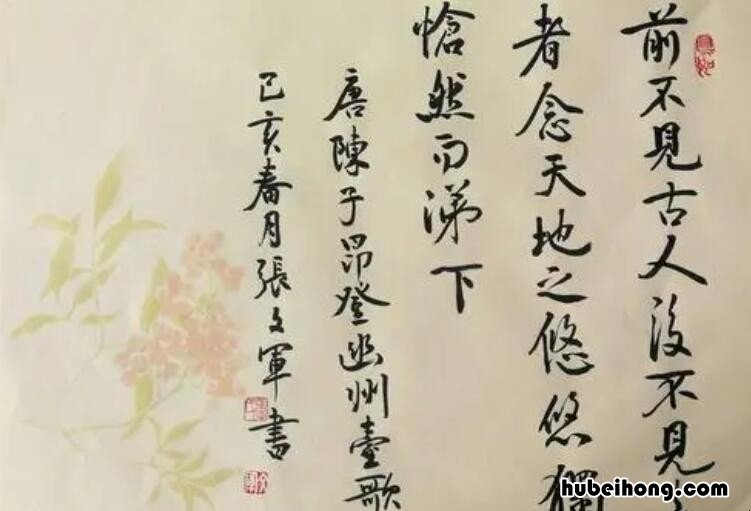 前不見古人後不見
者念天地之悠悠獨
愴然而涕下
唐陳子昂登幽州臺歌
己亥春月張文軍書
hubeihong.com